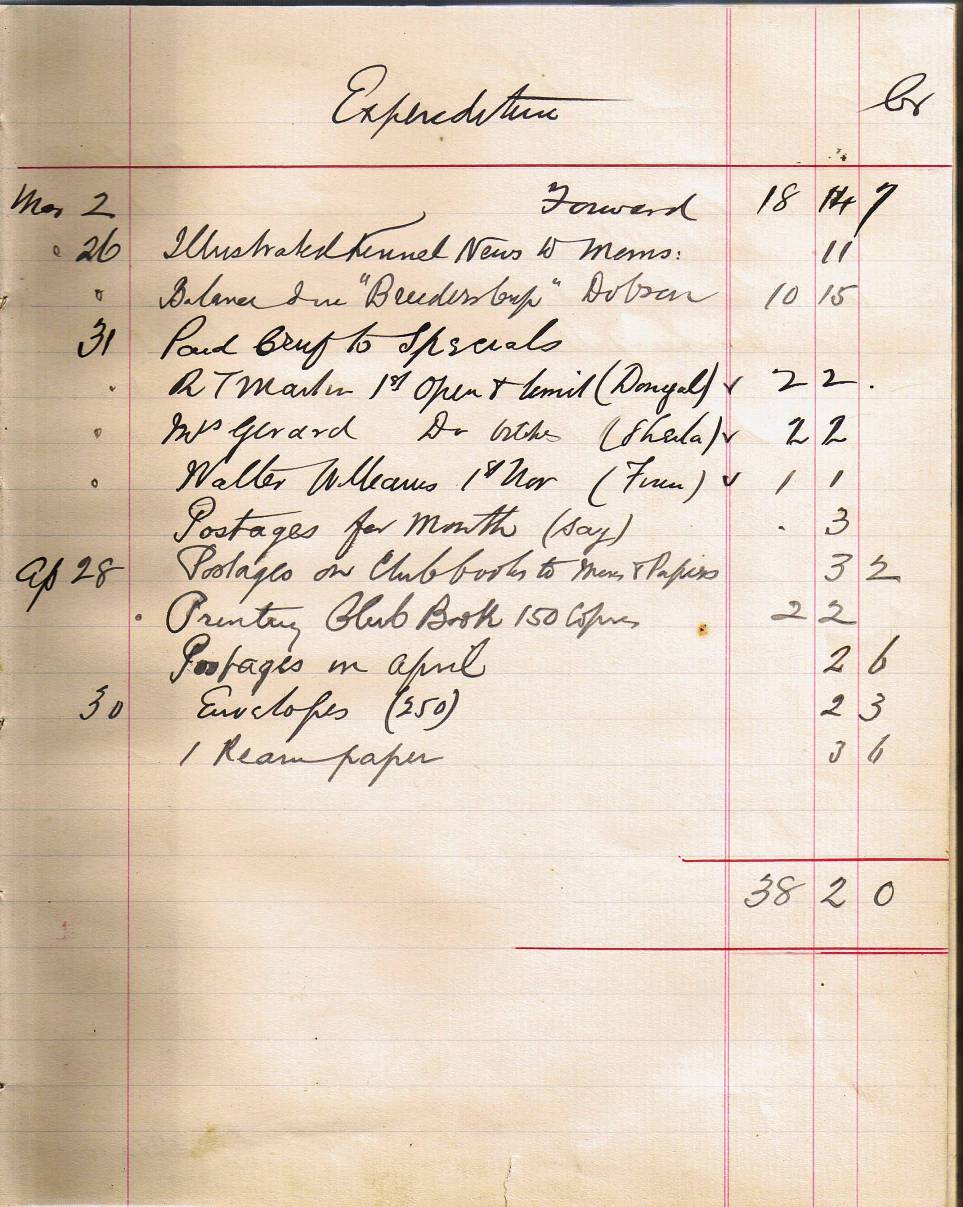 Expenditure Cr
Mar 2 Forward 18 14 7
" 26 Illustrated Kennel News to Mems: 11
" Balance due "Breeders Cup" Dobson 10 15
31 Paid Cruft to Specials
" R T Martin 1st Open & Limit (Donegal) ✓ 2 2 .
" Mrs Gerard Do bitches (Sheila) ✓ 2 2
" Walter Williams 1st Nov (Finn) ✓ 1 1
Postages for Month (say) . 3
Ap 28 Postages on Club books to Mems & Papers 3 2
" Printing Club Book 150 Copies 2 2
Postages in April 2 6
30 Envelopes (250) 2 3
1 Ream paper 3 6
38 2 0